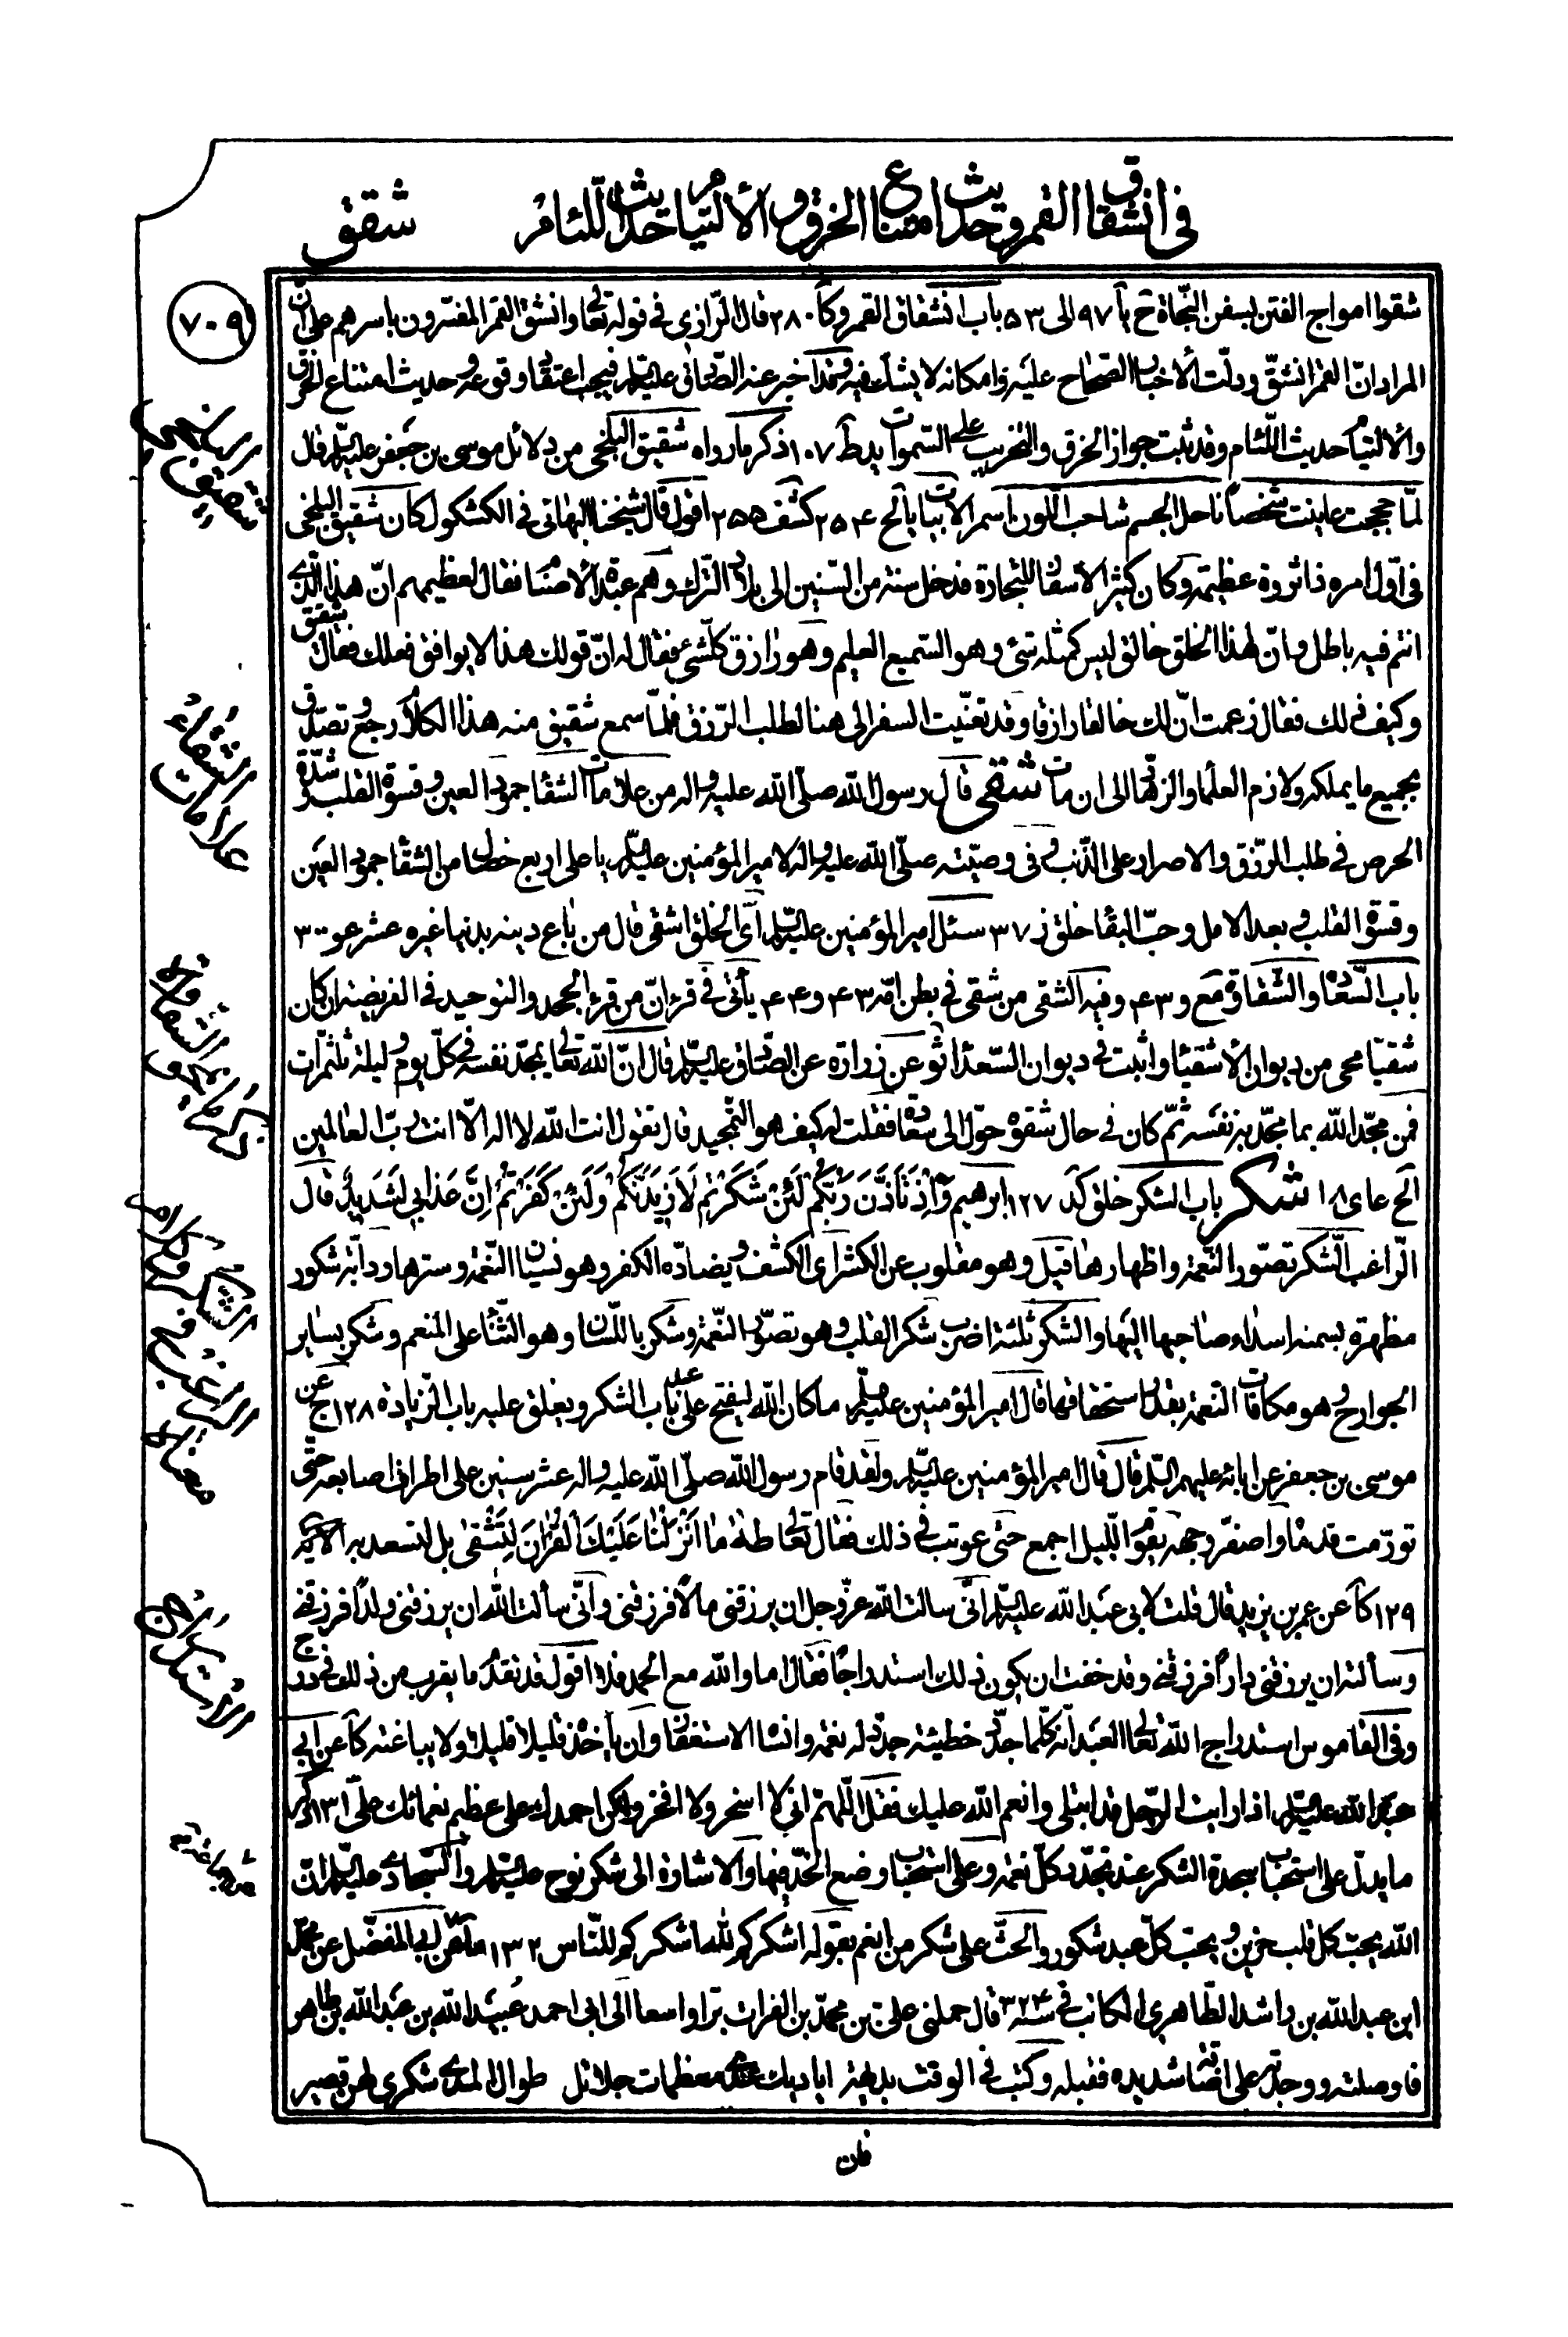 في انشقاق القمر وحديث امتناع الخرق والالتيام حديث اللئام
شقق
٧٠٩
شقوا امواج الفتن بسفن النّجاة ح يا ٩٧ الى ٥٣ باب انشقاق القمر وكا ٢٨٠ قال الرّازى في قوله تعالى وانشق القمر المفسّرون باسرهم على انّ
المراد انّ القمر انشقّ ودلّت الأخبار الصّحاح عليه وامكانه لا يشكّ فيه وقد اخبر عنه الصّادق عليه السّلم فيجب اعتقاد وقوعه وحديث امتناع الخرق
والالتيام حديث اللّئام وقد ثبت جواز الخرق والتخريب على السّموات يد ط ١٠٧ ذكر ما رواه شقيق البلخى من دلائل موسى بن جعفر عليه السّلم قال
لمّا حججت عاينت شخصاً ناحل الجسم شاحب اللّون اسمر الابيات يا لح ٢٥٤ كشف ٢٥٥ اقول قال شيخنا البهائى في الكشكول كان شقيق البلخى
في اوّل امره ذا ثروة عظيمة وكان كثير الاسفار للتجارة فدخل سنة من السّنين الى بلاد التّرك وهم عبدة الاصنام فقال لعظيمهم انّ هذا الّذى
انتم فيه باطل وانّ لهذا الخلق خالق ليس كمثله شئ وهو السّميع العليم وهو رازق كلّ شئ فقال له انّ قولك هذا لا يوافق فعلك فقال شقيق
وكيف ذلك فقال زعمت انّ لك خالقا رازقا وقد تعنّيت السفر الى هنا لطلب الرّزق فلمّا سمع شقيق منه هذا الكلام رجع وتصدّق
بجميع ما يملكه ولازم العلماء والزّهاد الى ان مات شقى قال رسول الله صلّى الله عليه واله من علامات الشّقاء جمود العين وقسوة القلب وشدّة
الحرص في طلب الرّزق والاصرار على الذّنب وفى وصيّته صلّى الله عليه واله لامير المؤمنين عليه السّلم يا على اربع خصال من الشّقاء جمود العين
وقسوة القلب وبعد الامل وحبّ البقاء خلق ز ٣٧ سئل امير المؤمنين عليه السّلم اىّ الخلق اشقى قال من باع دينه بدنيا غيره عشر عو ٣٠٠
باب السّعادة والشّقاوة مع و ٤٣ وفيه الشقى من شقى في بطن امّه ٤٣ و ٤٤ يأتى في قرء انّ من قرء الجحد والتوحيد في الفريضة ان كان
شقيّا محى من ديوان الأشقياء واثبت في ديوان السّعداء ثو عن زرارة عن الصّادق عليه السّلم قال انّ الله تعالى يمجّد نفسه في كلّ يوم وليلة ثلث مرّات
فمن مجّد الله بما مجّد به نفسه ثمّ كان في حال شقوة حوّل الى سعادة فقلت له كيف هو التّمجيد قال تقول انت الله لا اله الّا انت ربّ العالمين
الخ عا ى ١٨ شكر باب الشكر خلق كد ١٢٧ ابرهيم وَاِذْ تَاَذَّنَ رَبُّكُمْ لَئِنْ شَكَرْتُمْ لَاَزِيدَنَّكُمْ وَلَئِنْ كَفَرْتُمْ اِنَّ عَذابي لَشَدِيدٌ قال
الرّاغب الشّكر تصوّر النّعمة واظهارها قيل وهو مقلوب عن الكشر اى الكشف ويضادّه الكفر وهو نسيان النّعمة وسترها ودابّة شكور
مظهرة بسمنها اسداء صاحبها اليها والشكر ثلثة اضرب شكر القلب وهو تصوّر النّعمة وشكر باللّسان وهو الثّناء على المنعم وشكر بساير
الجوارح وهو مكافات النّعمة بقدر استحقاقها قال امير المؤمنين عليه السّلم ما كان الله ليفتح على عبد باب الشكر ويغلق عليه باب الزّيادة ١٢٨ ج عن
موسى بن جعفر عن ابائه عليهم السّلم قال قال امير المؤمنين عليه السّلم ولقد قام رسول الله صلّى الله عليه واله عشر سنين على اطراف اصابعه حتّى
تورّمت قدماه واصفرّ وجهه يقوم اللّيل اجمع حتّى عوتب في ذلك فقال تعالى طه مَا اَنْزَلْنَا عَلَيْكَ الْقُرْانَ لِتَشْقى بل لتسعد به الاية
١٢٩ كا عن عمر بن يزيد قال قلت لابى عبد الله عليه السّلم انّى سالت الله عزّ وجل ان يرزقنى مالاً فرزقنى وانّى سألت الله ان يرزقنى ولداً فرزقنى
وسألته ان يرزقنى داراً فرزقنى وقد خفت ان يكون ذلك استدراجاً فقال اما والله مع الحمد فلا اقول قد تقدّم ما يقرب من ذلك في درج
وفى القاموس استدراج الله تعالى العبد انّه كلّما جدّد خطيئة جدّد له نعمة وانساه الاستغفار وان يأخذه قليلا قليلا ولا يباغته كا عن ابى
عبد الله عليه السّلم اذا رايت الرّجل قد ابتلى وانعم الله عليك فقل اللّهمّ انى لا اسخر ولا افخر ولكن احمدك على عظيم نعمائك علىّ ١٣١ ذكر
ما يدلّ على استحباب سجدة الشكر عند تجدّد كلّ نعمة وعلى استحباب وضع الخدّ فيها والاشارة الى شكر نوح عليه السّلم والسّجاد عليه السّلم انّ
الله يحبّ كلّ قلب حزين ويحبّ كلّ عبد شكور والحثّ على شكر من انعم بقوله اشكركم لله اشكركم للنّاس ١٣٢ ما عن ابى المفضّل عن محمّد
ابن عبد الله بن راشد الطّاهرى الكاتب في سنة ٣٢٤ قال حملنى علىّ بن محمّد بن الفرات برّا واسعا الى ابى احمد عبيد الله بن عبد الله بن طاهر
فاوصلته ووجدته على اضاقة شديدة فقبله وكتب في الوقت بديهة اياديك عندى معظمات جلائل طوال المدى شكرى لهنّ قصير
فان
علامات الشقاء
الشكر
الاستدراج